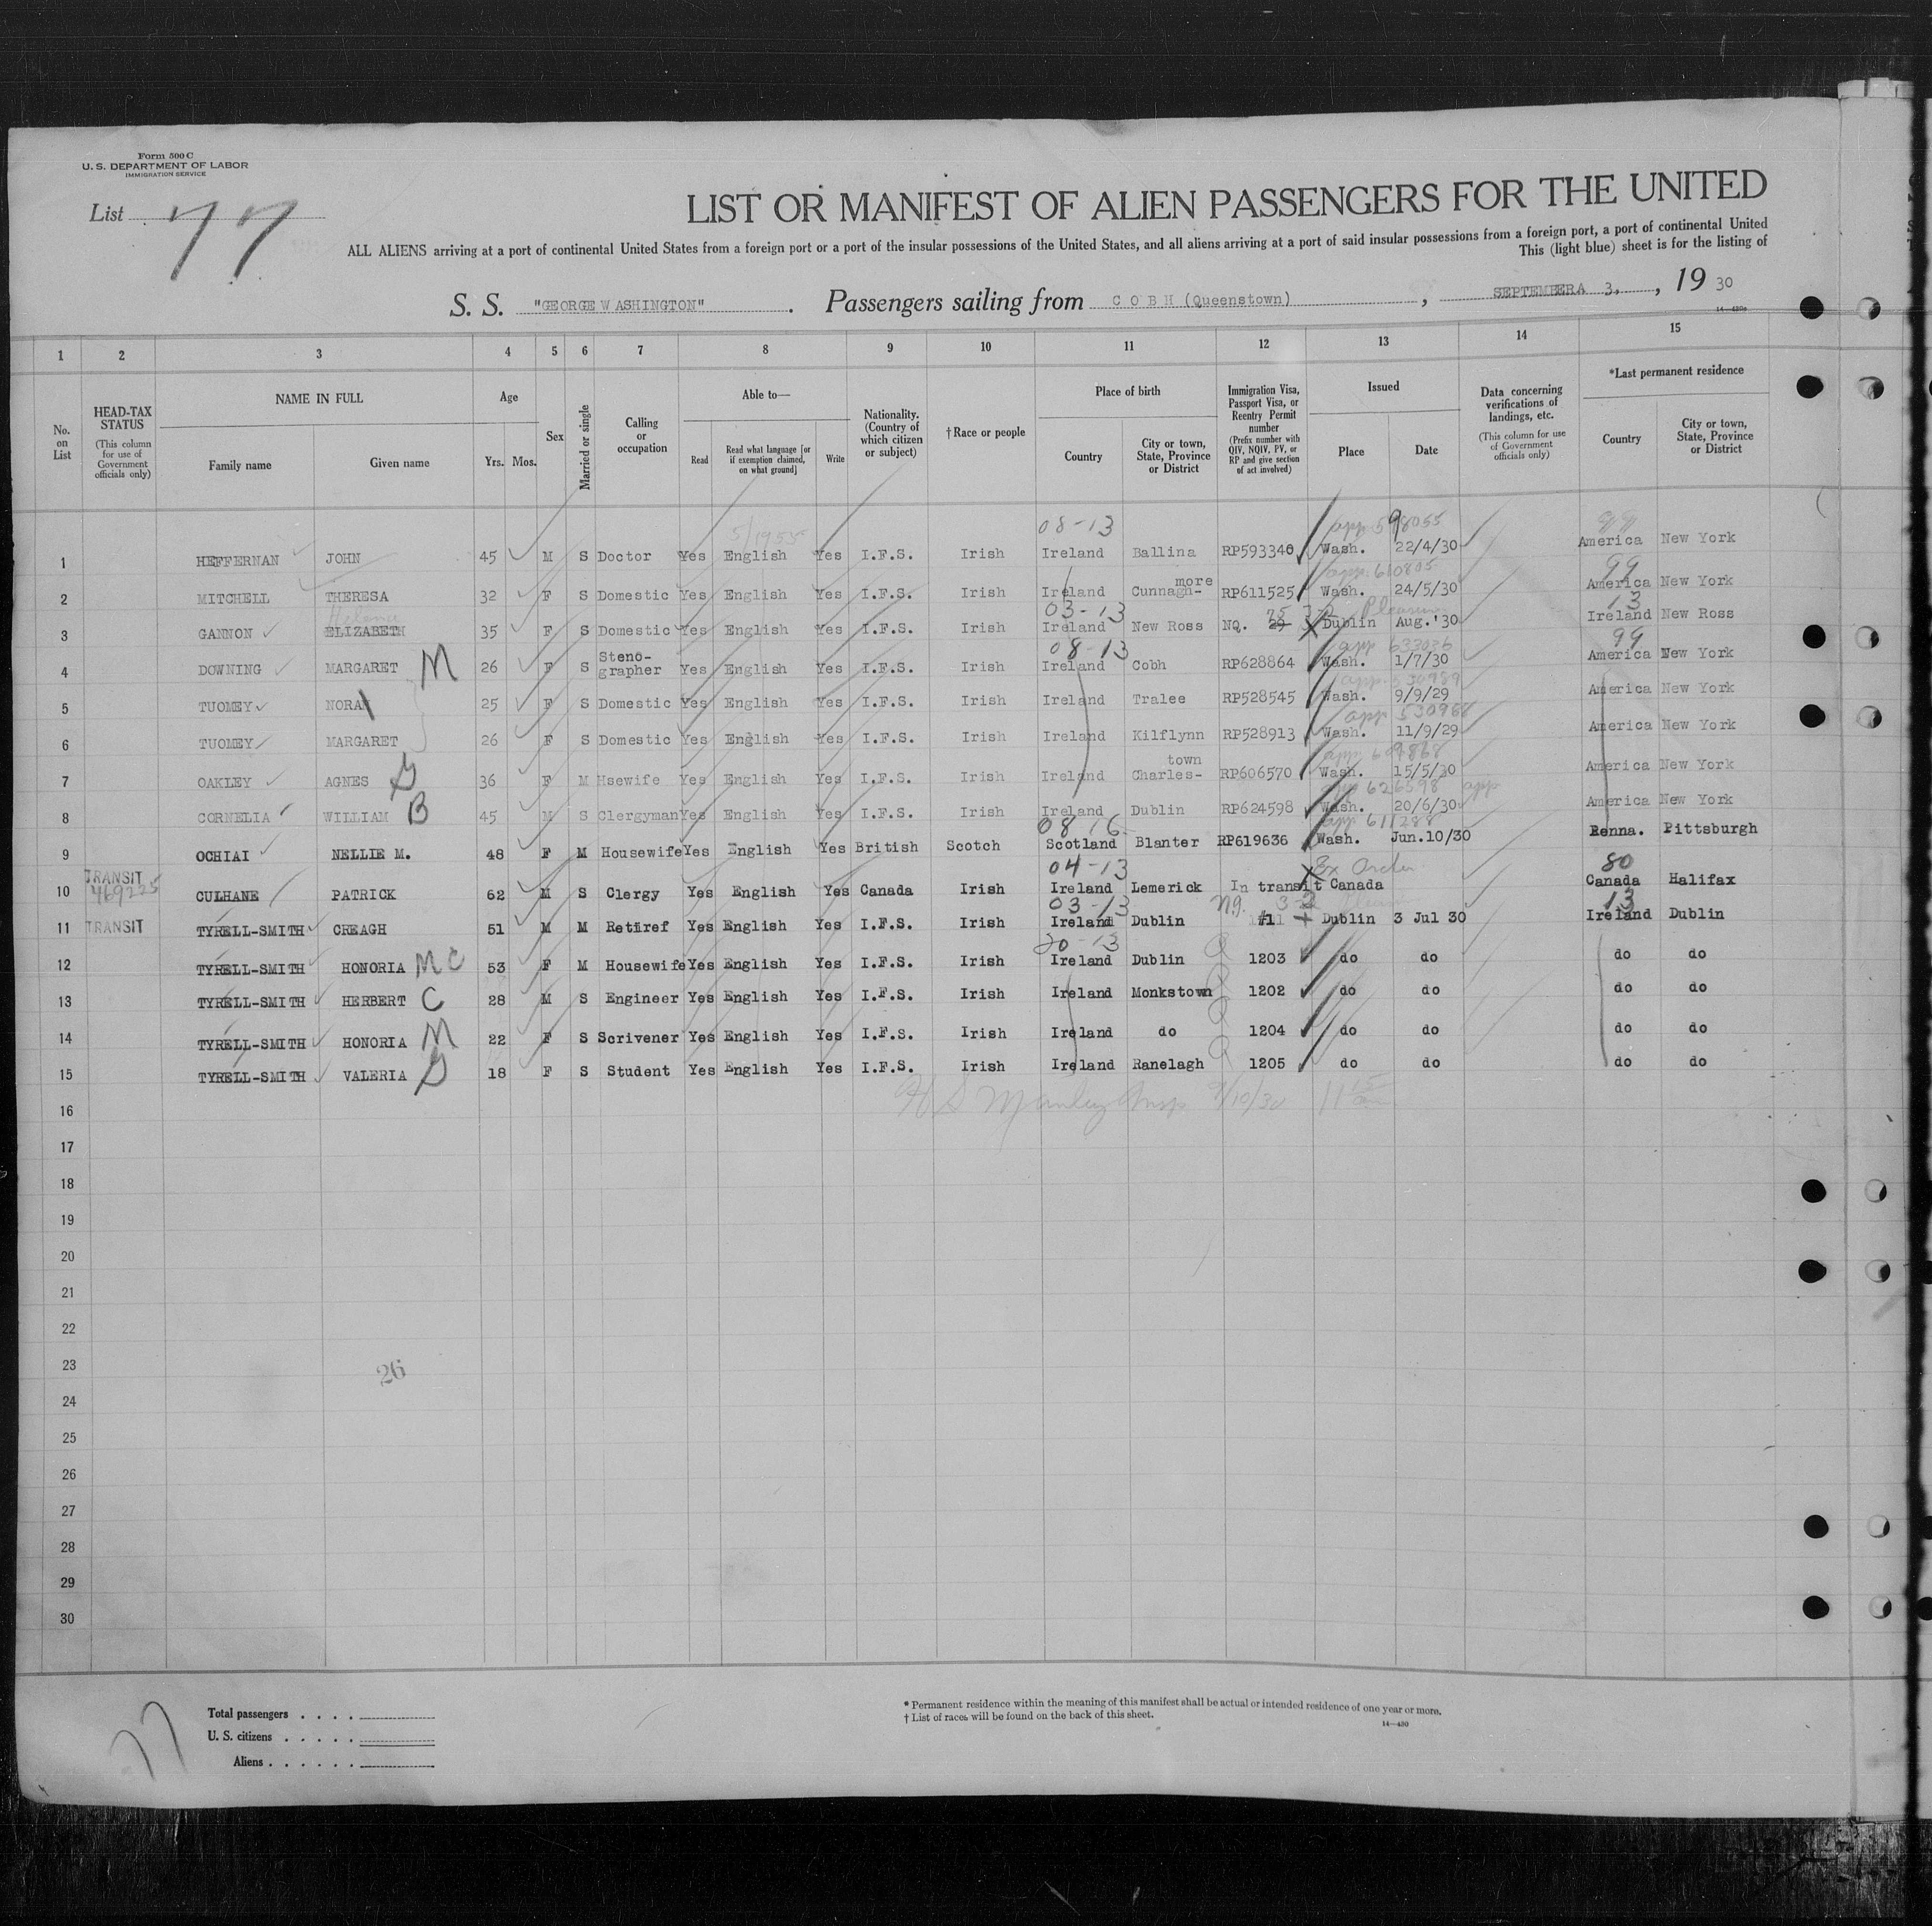 Form 500 C
U. S. DEPARTMENT OF LABOR
IMMIGRATION SERVICE
List 77
LIST OR MANIFEST OF ALIEN PASSENGERS FOR THE UNITED
ALL ALIENS arriving at a port of continental United States from a foreign port or a port of the insular possessions of the United States, and all aliens arriving at a port of said insular possessions from a foreign port, a port of continental United
This (light blue) sheet is for the listing of
S. S. "GEORGE WASHINGTON". Passengers sailing from COBH (Queenstown), SEPTEMBER 3, , 19 30
14—430a
1 2 3 4 5 6 7 8 9 10 11 12 13 14 15
No. on List
HEAD-TAX STATUS (This column for use of Government officials only)
NAME IN FULL Family name Given name
Age Yrs. Mos.
Sex
Married or single
Calling or occupation
Able to— Read Read what language [or if exemption claimed, on what ground] Write
Nationality. (Country of which citizen or subject)
†Race or people
Place of birth Country City or town, State, Province or District
Immigration Visa, Passport Visa, or Reentry Permit number (Prefix number with QIV, NQIV, PV, or RP and give section of act involved)
Issued Place Date
Data concerning verifications of landings, etc. (This column for use of Government officials only)
*Last permanent residence Country City or town, State, Province or District
5/1955 08-13 app 598055 99
1 HEFFERNAN JOHN 45 M S Doctor Yes English Yes I.F.S. Irish Ireland Ballina RP593340 Wash. 22/4/30 America New York
app 610805 99
2 MITCHELL THERESA 32 F S Domestic Yes English Yes I.F.S. Irish Ireland Cunnagh-more RP611525 Wash. 24/5/30 America New York
Helena 03-13 75 3-2 Pleasure 13
3 GANNON ELIZABETH 35 F S Domestic Yes English Yes I.F.S. Irish Ireland New Ross NQ. 29 Dublin Aug.'30 Ireland New Ross
08-13 app 633026 99
4 DOWNING MARGARET M 26 F S Steno-grapher Yes English Yes I.F.S. Irish Ireland Cobh RP628864 Wash. 1/7/30 America New York
app 530989
5 TUOMEY NORA 25 F S Domestic Yes English Yes I.F.S. Irish Ireland Tralee RP528545 Wash. 9/9/29 America New York
app 530968
6 TUOMEY MARGARET 26 F S Domestic Yes English Yes I.F.S. Irish Ireland Kilflynn RP528913 Wash. 11/9/29 America New York
app 609868
7 OAKLEY AGNES 36 F M Hsewife Yes English Yes I.F.S. Irish Ireland Charles-town RP606570 Wash. 15/5/30 America New York
app 626598 app
8 CORNELIA WILLIAM B 45 M S Clergyman Yes English Yes I.F.S. Irish Ireland Dublin RP624598 Wash. 20/6/30 America New York
08 16 app 611288
9 OCHIAI NELLIE M. 48 F M Housewife Yes English Yes British Scotch Scotland Blanter RP619636 Wash. Jun.10/30 Penna. Pittsburgh
TRANSIT 04-13 Ex Order 80
10 469225 CULHANE PATRICK 62 M S Clergy Yes English Yes Canada Irish Ireland Lemerick In transit Canada Canada Halifax
03-13 nq. 3-2 13
11 TRANSIT TYRELL-SMITH CREAGH 51 M M Retiref Yes English Yes I.F.S. Irish Ireland Dublin #1 Dublin 3 Jul 30 Ireland Dublin
20-13
12 TYRELL-SMITH HONORIA M C 53 F M Housewife Yes English Yes I.F.S. Irish Ireland Dublin 1203 do do do do
13 TYRELL-SMITH HERBERT C 28 M S Engineer Yes English Yes I.F.S. Irish Ireland Monkstown 1202 do do do do
14 TYRELL-SMITH HONORIA M 22 F S Scrivener Yes English Yes I.F.S. Irish Ireland do 1204 do do do do
15 TYRELL-SMITH VALERIA 18 F S Student Yes English Yes I.F.S. Irish Ireland Ranelagh 1205 do do do do
16 H S Manley Insp 9/10/30 11
17
18
19
20
21
22
23
26
24
25
26
27
28
29
30
77
Total passengers . . . .
U. S. citizens . . . . .
Aliens . . . . . .
* Permanent residence within the meaning of this manifest shall be actual or intended residence of one year or more.
† List of races will be found on the back of this sheet.
14—430